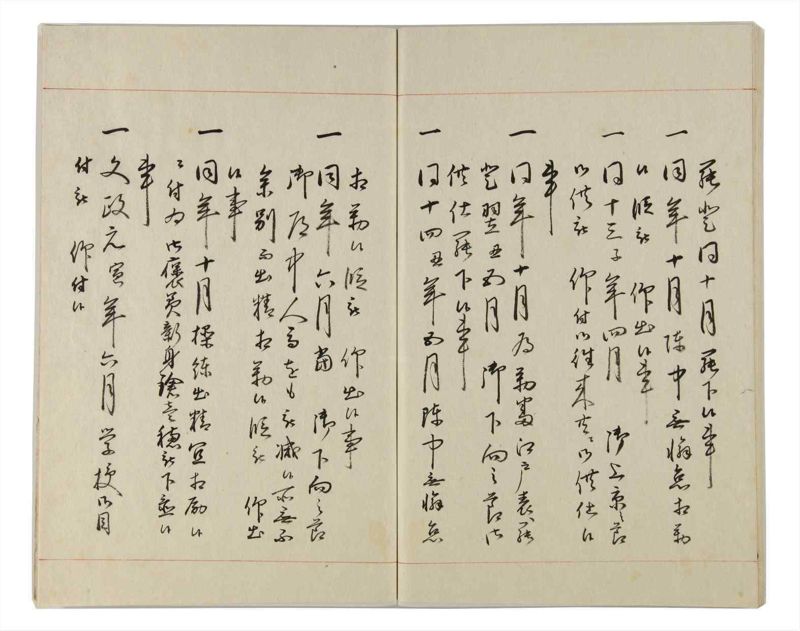 罷登同十月罷下候事
一同年十月陣中無懈怠相勤
候段被 仰出候事
一同十三子年四月 御上京之節
御供被 仰付御往来共ニ御供仕候
事
一同年十月為勤番江戸表罷
登翌丑五月 御下向之節御
供仕罷下候事
一同十四丑年五月陣中無懈怠
相勤候段被 仰出候事
一同年六月當 御下向之節
御道中人馬をも被減候所無不
参別而出精相勤候段被 仰出
候事
一同年十月操練出精宜相励候
ニ付為御褒美新身鎗壱穂被下置候
事
一文政元寅年六月学校御目
付被 仰付候